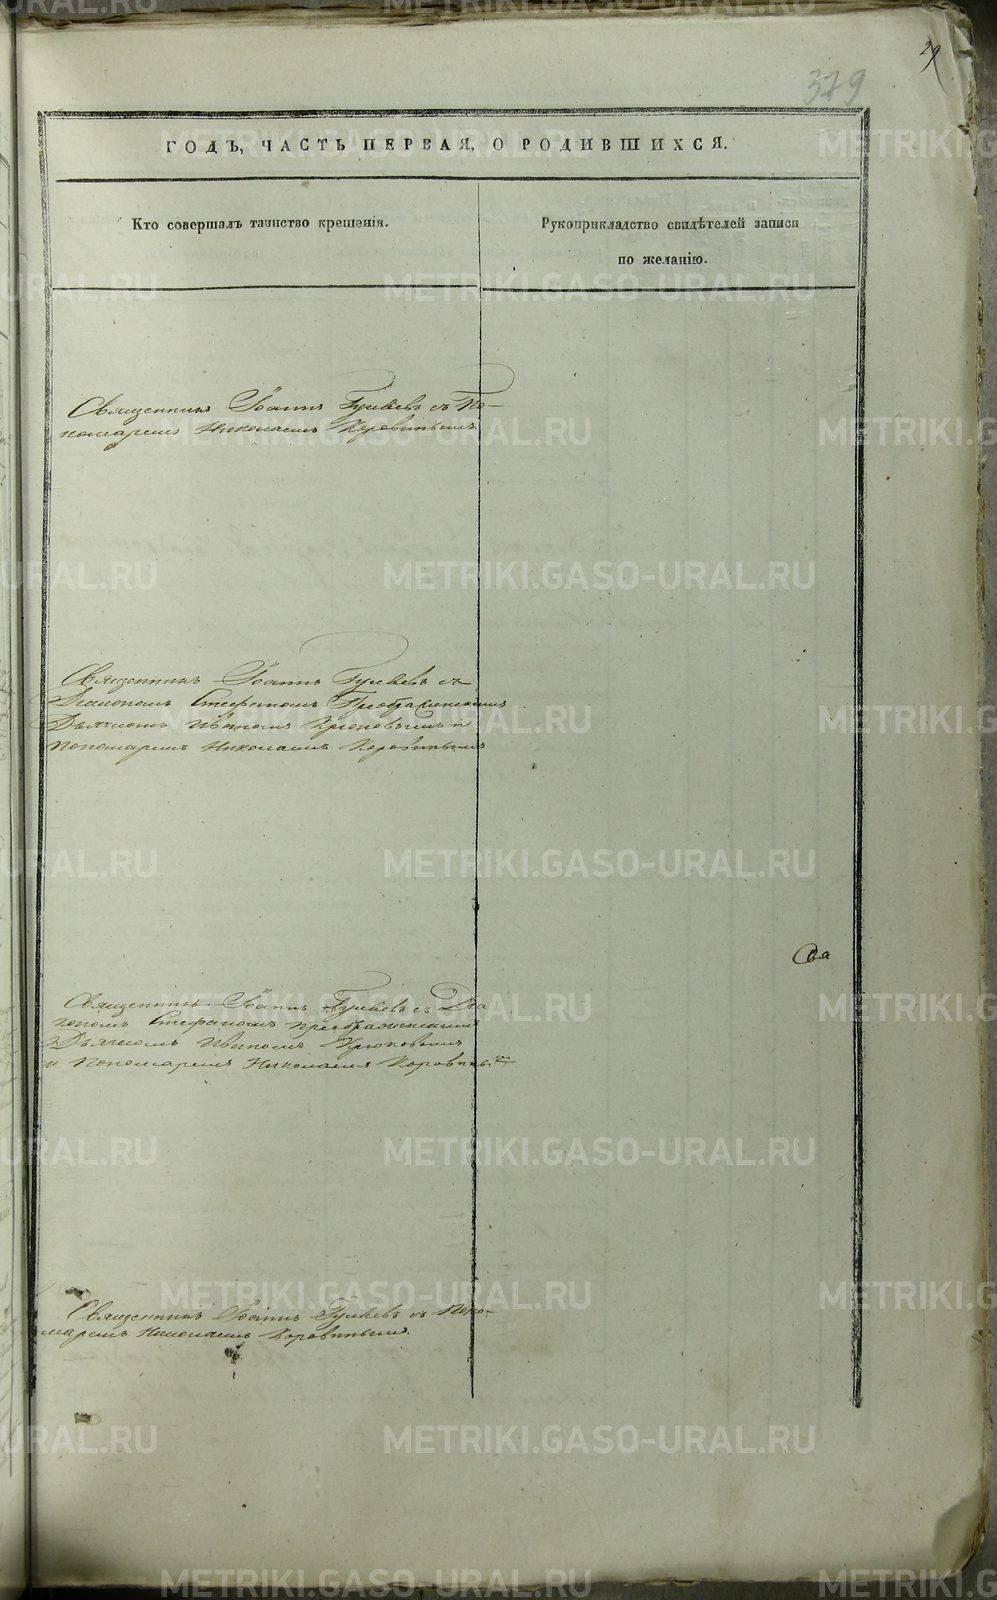 29
379
ГОДЪ, ЧАСТЬ ПЕРВАЯ, О РОДИВШИХСЯ.
Кто совершалъ таинство крещенія.
Рукоприкладство свидѣтелей записи
по желанію.
Священникъ Іоаннъ Гуляевъ съ По-
номаремъ Николаемъ Коровинымъ
Священникъ Іоаннъ Гуляевъ съ
Діакономъ Стефаномъ Преображенскимъ
Дьячкомъ Иваномъ Крюковымъ и
Пономаремъ Николаемъ Коровинымъ
Священникъ Іоаннъ Гуляевъ съ Діа
кономъ Стефаномъ Преображенскимъ
Дьячкомъ Иваномъ Крюковымъ
и Пономаремъ Николаемъ Коровинымъ
Священникъ Іоаннъ Гуляевъ съ Поно-
маремъ Николаемъ Коровинымъ.
METRIKI.GASO-URAL.RU